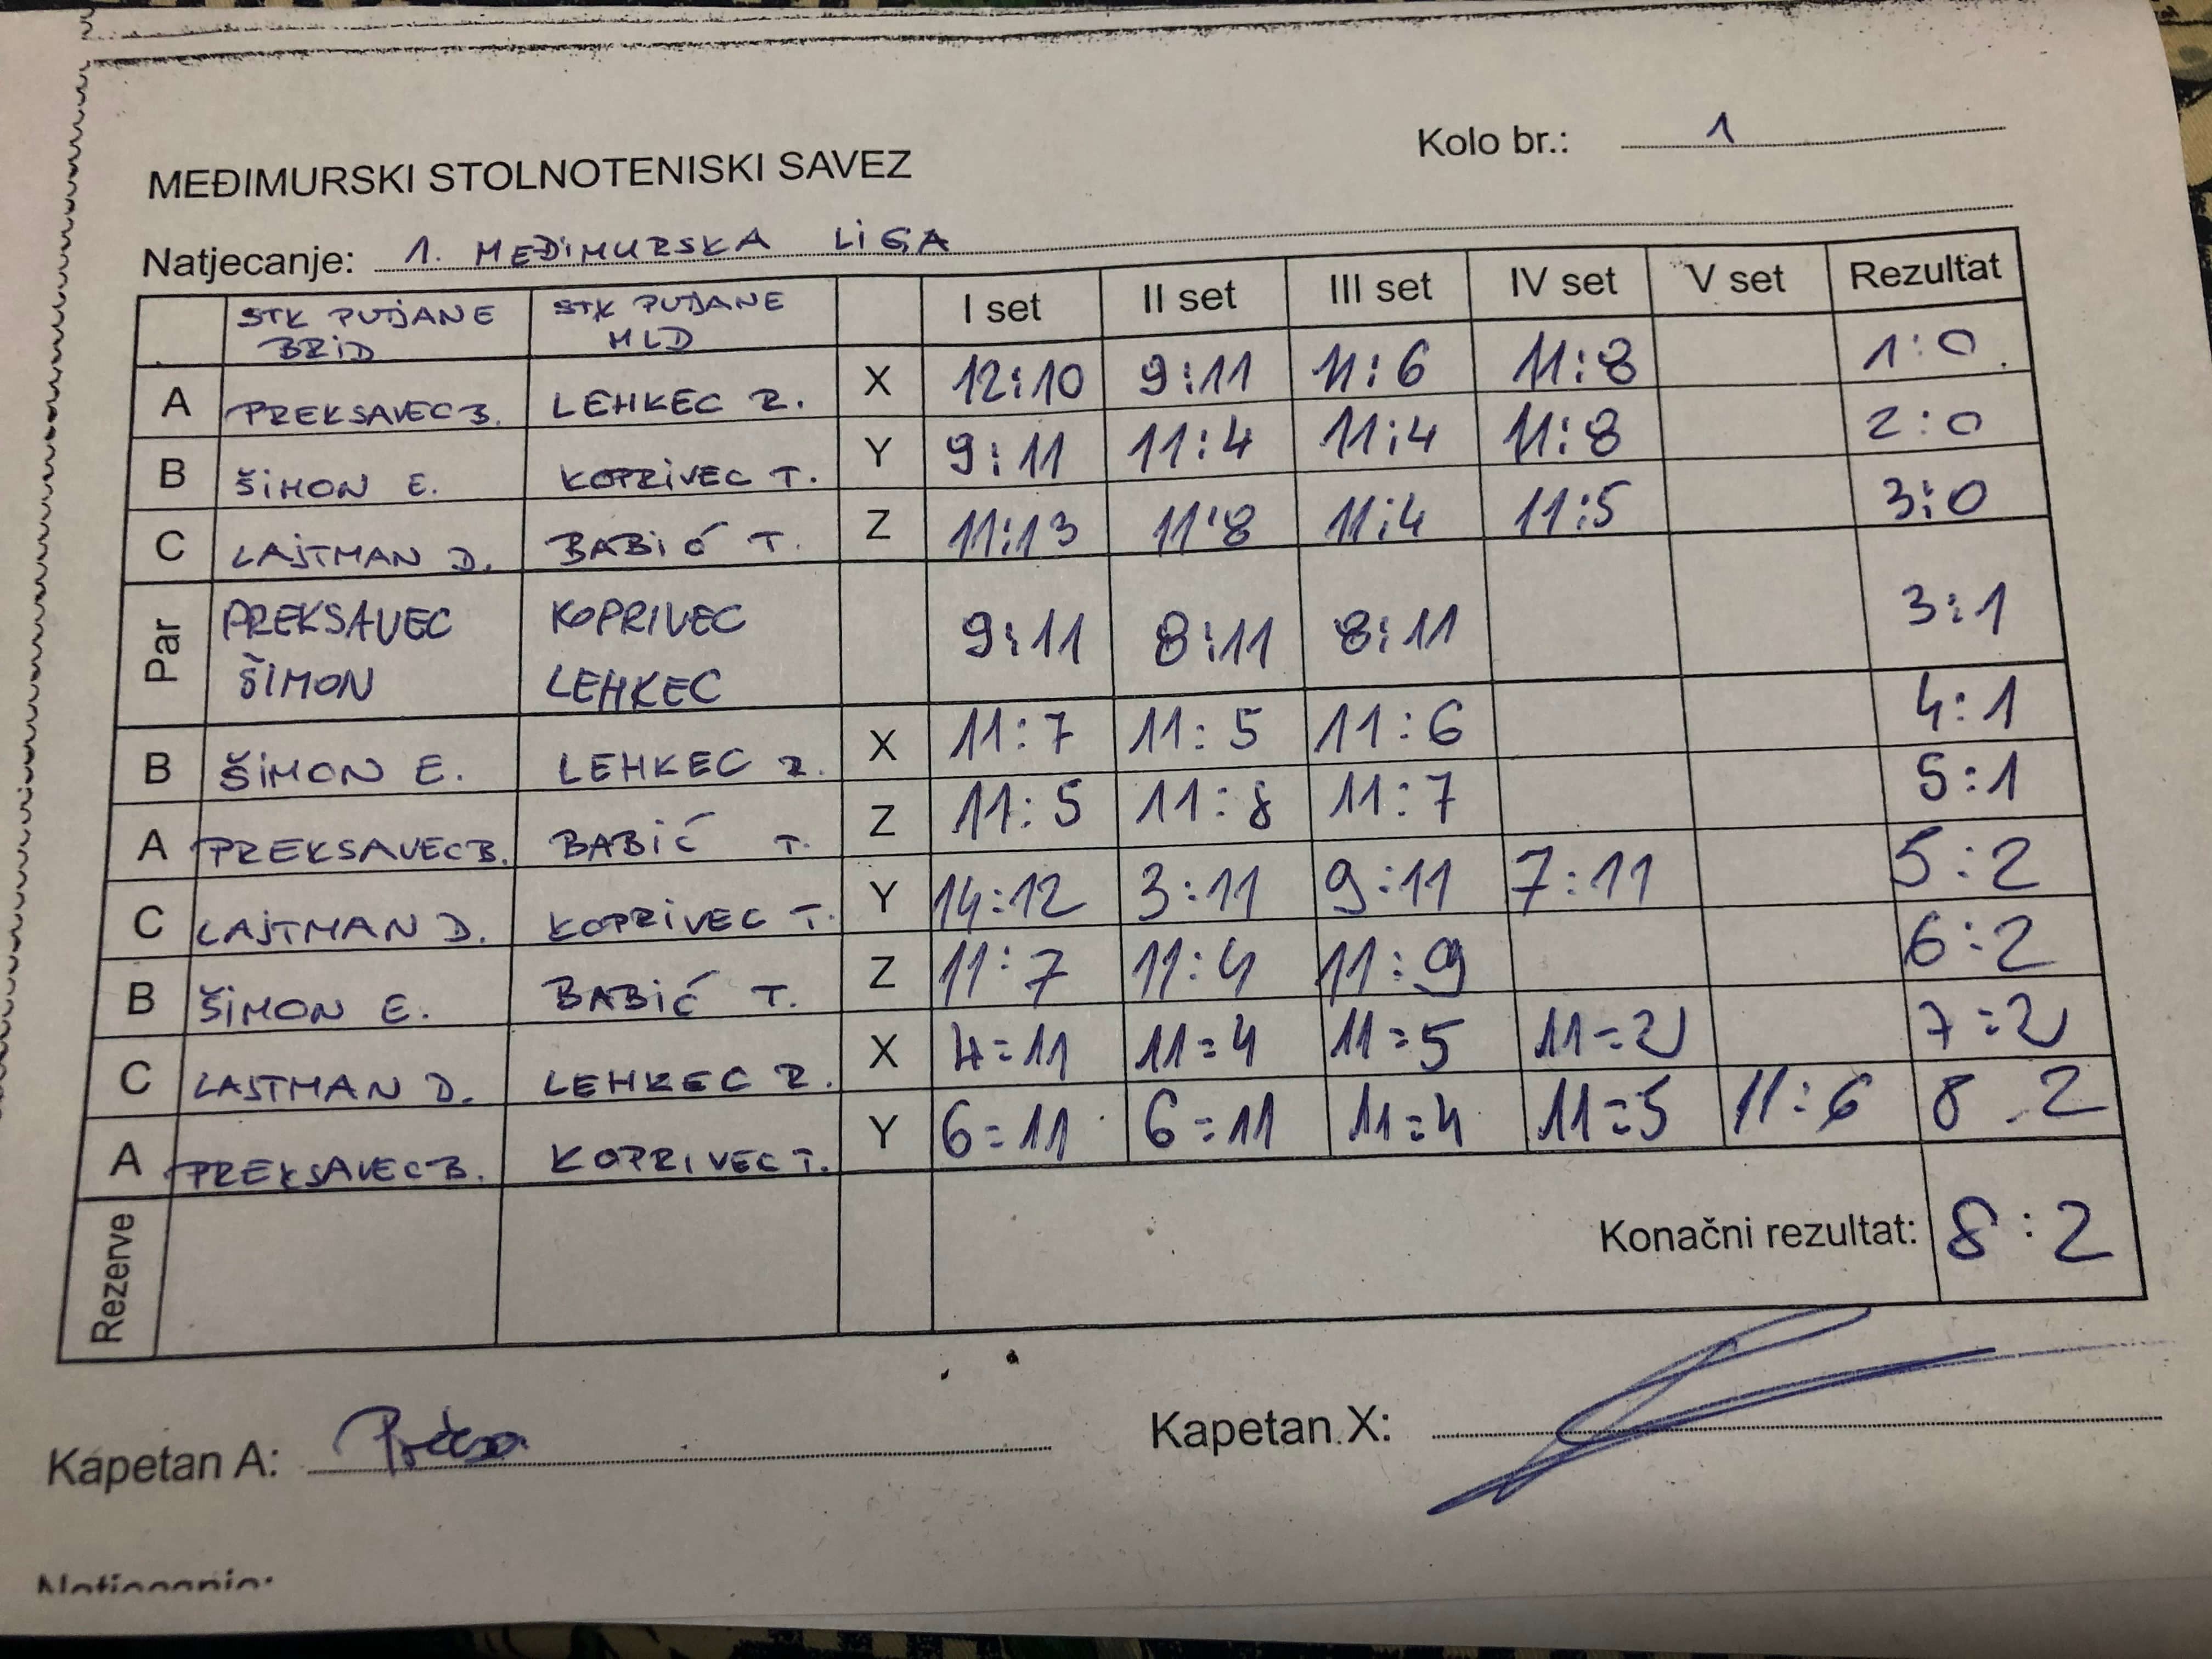 Kolo br.: 1
MEĐIMURSKI STOLNOTENISKI SAVEZ
Natjecanje: 1. MEĐIMURSKA LIGA
STK PUŠĆANE BRID STK PUŠĆANE MLD I set II set III set IV set V set Rezultat
A PREKSAVEC B. LEHKEC R. X 12:10 9:11 11:6 11:8 1:0
B ŠIMON E. KOPRIVEC T. Y 9:11 11:4 11:4 11:8 2:0
C LAJTMAN D. BABIĆ T. Z 11:13 11:8 11:4 11:5 3:0
Par PREKSAVEC ŠIMON KOPRIVEC LEHKEC 9:11 8:11 8:11 3:1
B ŠIMON E. LEHKEC R. X 11:7 11:5 11:6 4:1
A PREKSAVEC B. BABIĆ T. Z 11:5 11:8 11:7 5:1
C LAJTMAN D. KOPRIVEC T. Y 14:12 3:11 9:11 7:11 5:2
B ŠIMON E. BABIĆ T. Z 11:7 11:4 11:9 6:2
C LAJTMAN D. LEHKEC R. X 4=11 11=4 11=5 11=2 7=2
A PREKSAVEC B. KOPRIVEC T. Y 6=11 6=11 11=4 11=5 11:6 8 - 2
Rezerve Konačni rezultat: 8:2
Kapetan A: Kapetan X: